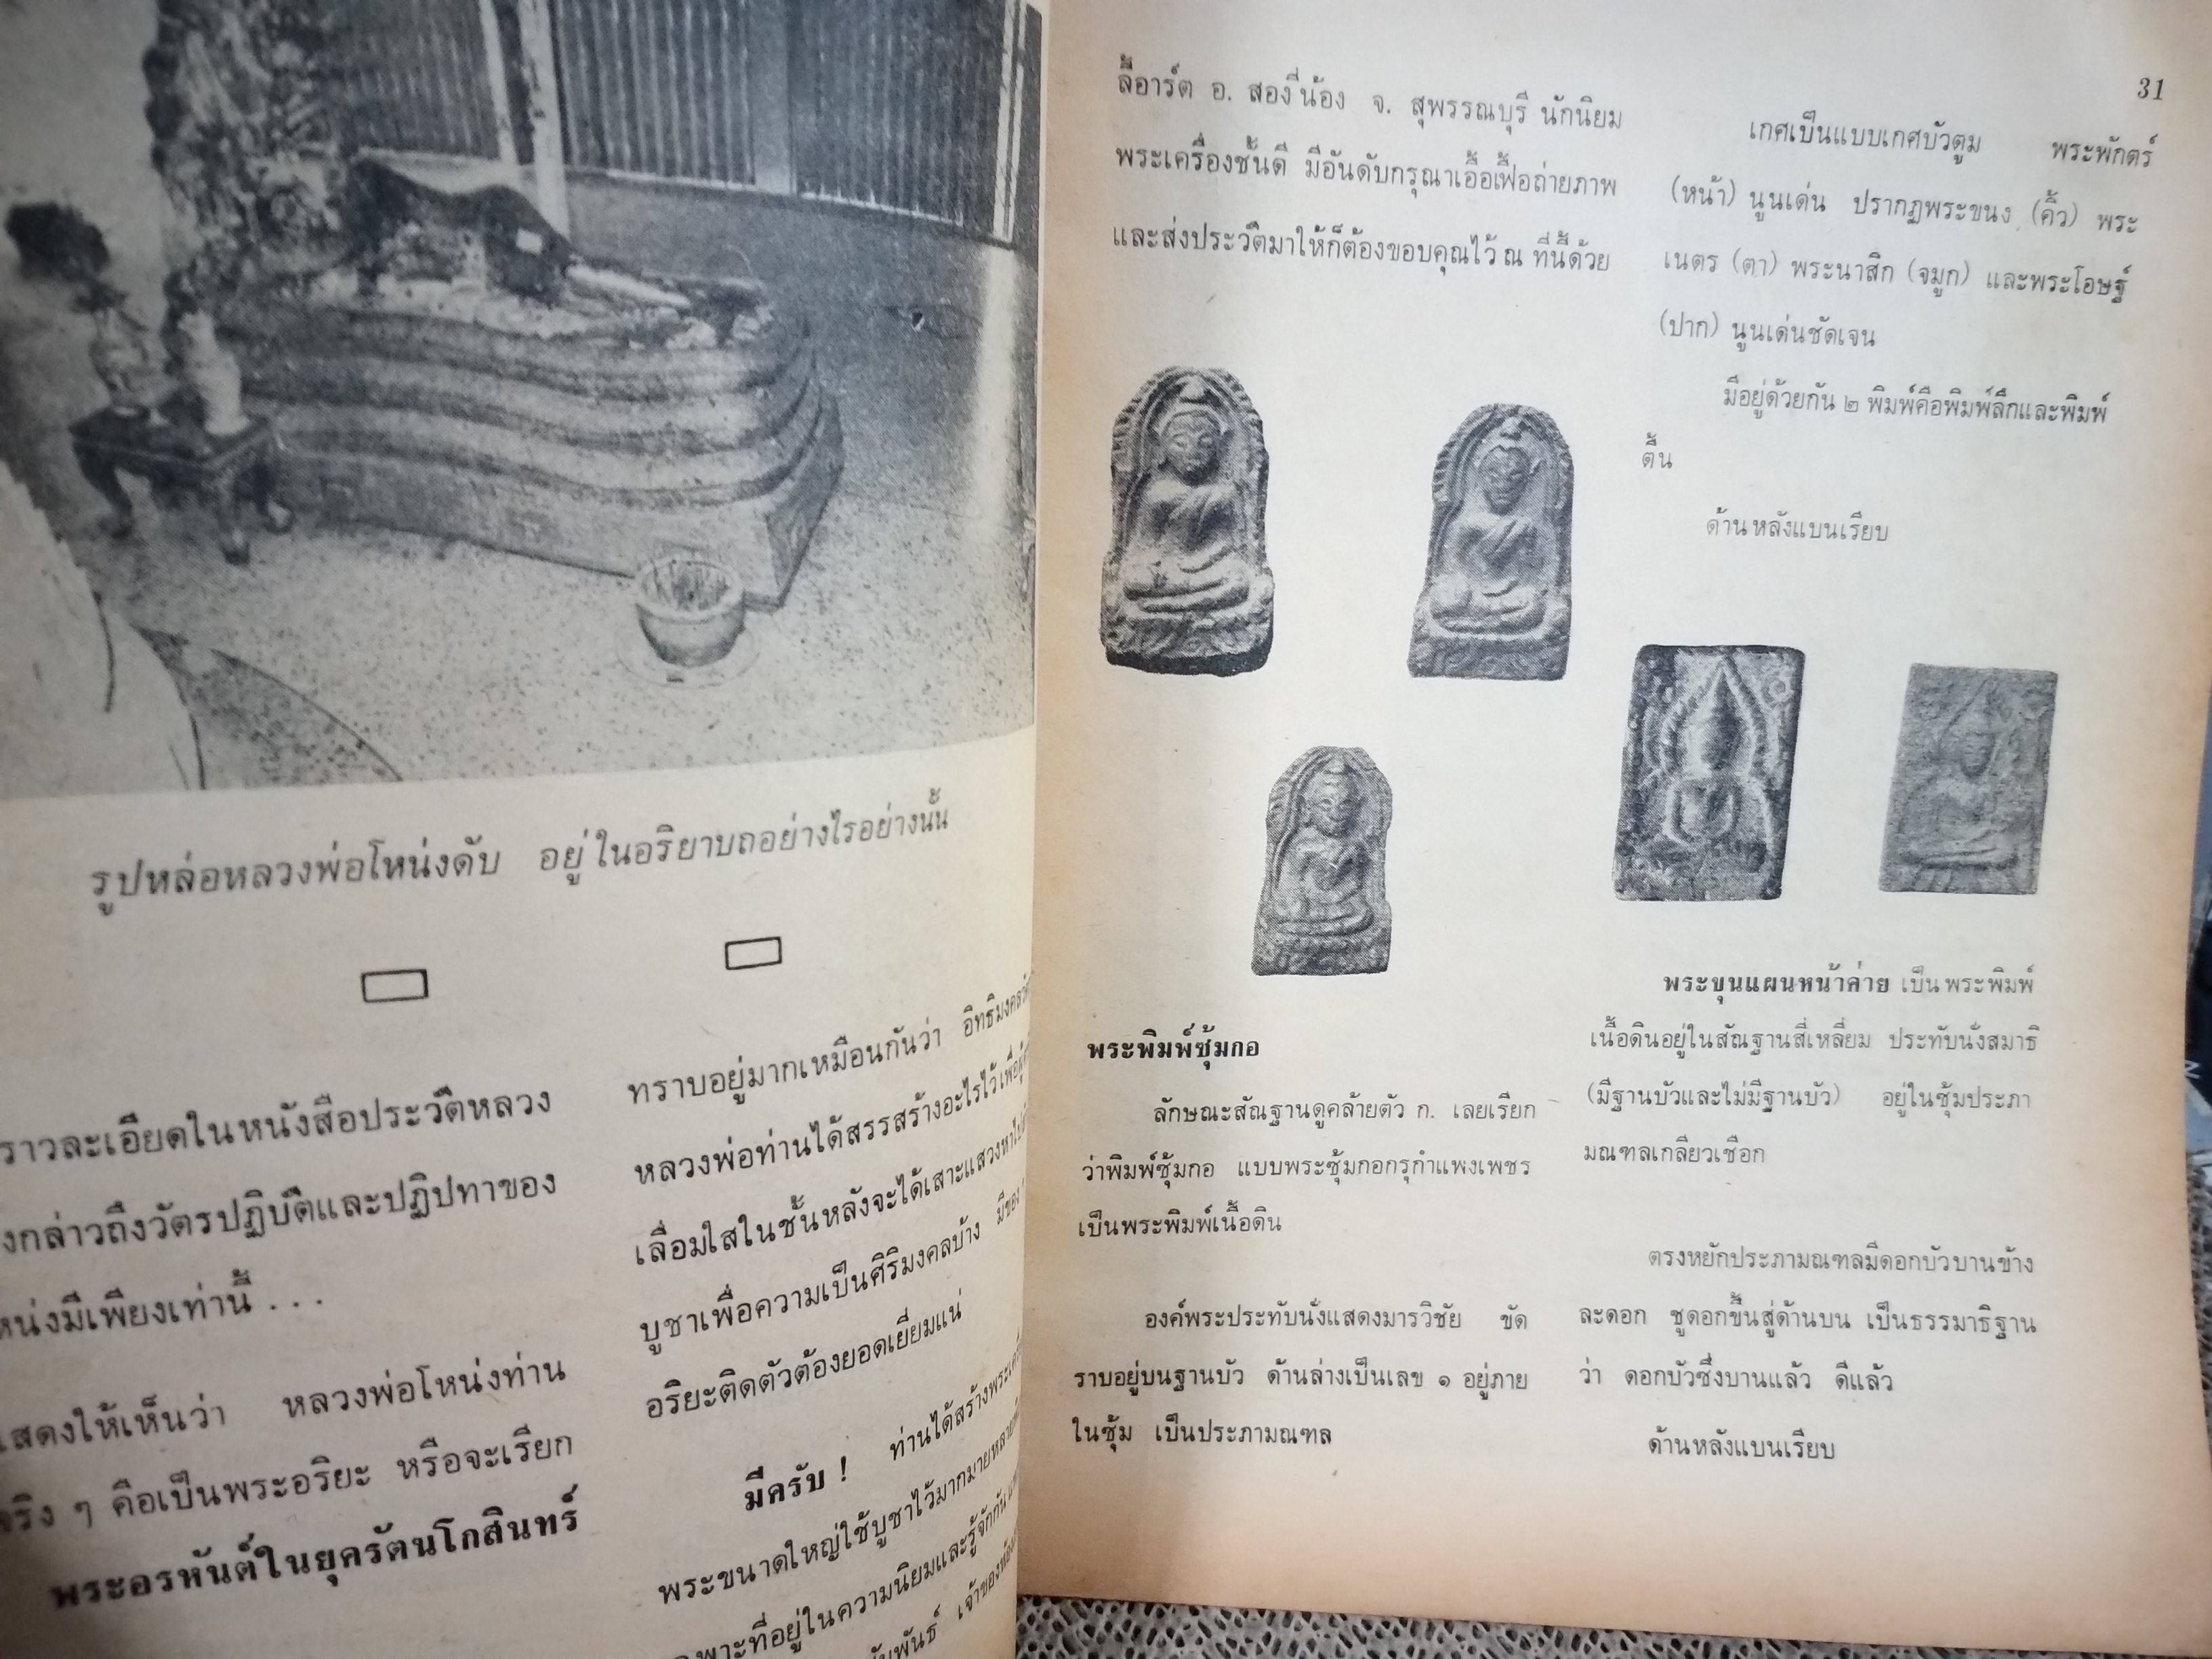 รูปหล่อหลวงพ่อโหน่งดับ อยู่ในอริยาบถอย่างไรอย่างนั้น
ราวละเอียดในหนังสือประวัติหลวง
งกล่าวถึงวัตรปฏิบัติและปฏิปทาของ
หน่งมีเพียงเท่านี้ . . .
แสดงให้เห็นว่า หลวงพ่อโหน่งท่าน
จริง ๆ คือเป็นพระอริยะ หรือจะเรียก
พระอรหันต์ในยุครัตนโกสินทร์
ทราบอยู่มากเหมือนกันว่า
หลวงพ่อท่านได้สรรสร้างอะไรไว้เพื่อผู้
เลื่อมใสในชั้นหลังจะได้เสาะแสวงหา
บูชาเพื่อความเป็นศิริมงคลบ้าง มีของ
อริยะติดตัวต้องยอดเยี่ยมแน่
มีครับ ! ท่านได้สร้าง
พระขนาดใหญ่ใช้บูชาไว้มากมาย
ฉพาะที่อยู่ในความนิยมและรู้จักกัน
เจ้าของ
31
ลี้อาร์ต อ. สองพี่น้อง จ. สุพรรณบุรี นักนิยม
พระเครื่องชั้นดี มีอันดับกรุณาเอื้อเฟื้อถ่ายภาพ
และส่งประวัติมาให้ก็ต้องขอบคุณไว้ ณ ที่นี้ด้วย
พระพิมพ์ซุ้มกอ
ลักษณะสัณฐานดูคล้ายตัว ก. เลยเรียก
ว่าพิมพ์ซุ้มกอ แบบพระซุ้มกอกรุกำแพงเพชร
เป็นพระพิมพ์เนื้อดิน
องค์พระประทับนั่งแสดงมารวิชัย ขัด
ราบอยู่บนฐานบัว ด้านล่างเป็นเลข ๑ อยู่ภาย
ในซุ้ม เป็นประภามณฑล
เกศเป็นแบบเกศบัวตูม พระพักตร์
(หน้า) นูนเด่น ปรากฏพระขนง (คิ้ว) พระ
เนตร (ตา) พระนาสิก (จมูก) และพระโอษฐ์
(ปาก) นูนเด่นชัดเจน
มีอยู่ด้วยกัน ๒ พิมพ์คือพิมพ์ลึกและพิมพ์
ตื้น
ด้านหลังแบนเรียบ
พระขุนแผนหน้าค่าย เป็นพระพิมพ์
เนื้อดินอยู่ในสัณฐานสี่เหลี่ยม ประทับนั่งสมาธิ
(มีฐานบัวและไม่มีฐานบัว) อยู่ในซุ้มประภา
มณฑลเกลียวเชือก
ตรงหยักประภามณฑลมีดอกบัวบานข้าง
ละดอก ชูดอกขึ้นสู่ด้านบน เป็นธรรมาธิฐาน
ว่า ดอกบัวซึ่งบานแล้ว ดีแล้ว
ด้านหลังแบนเรียบ